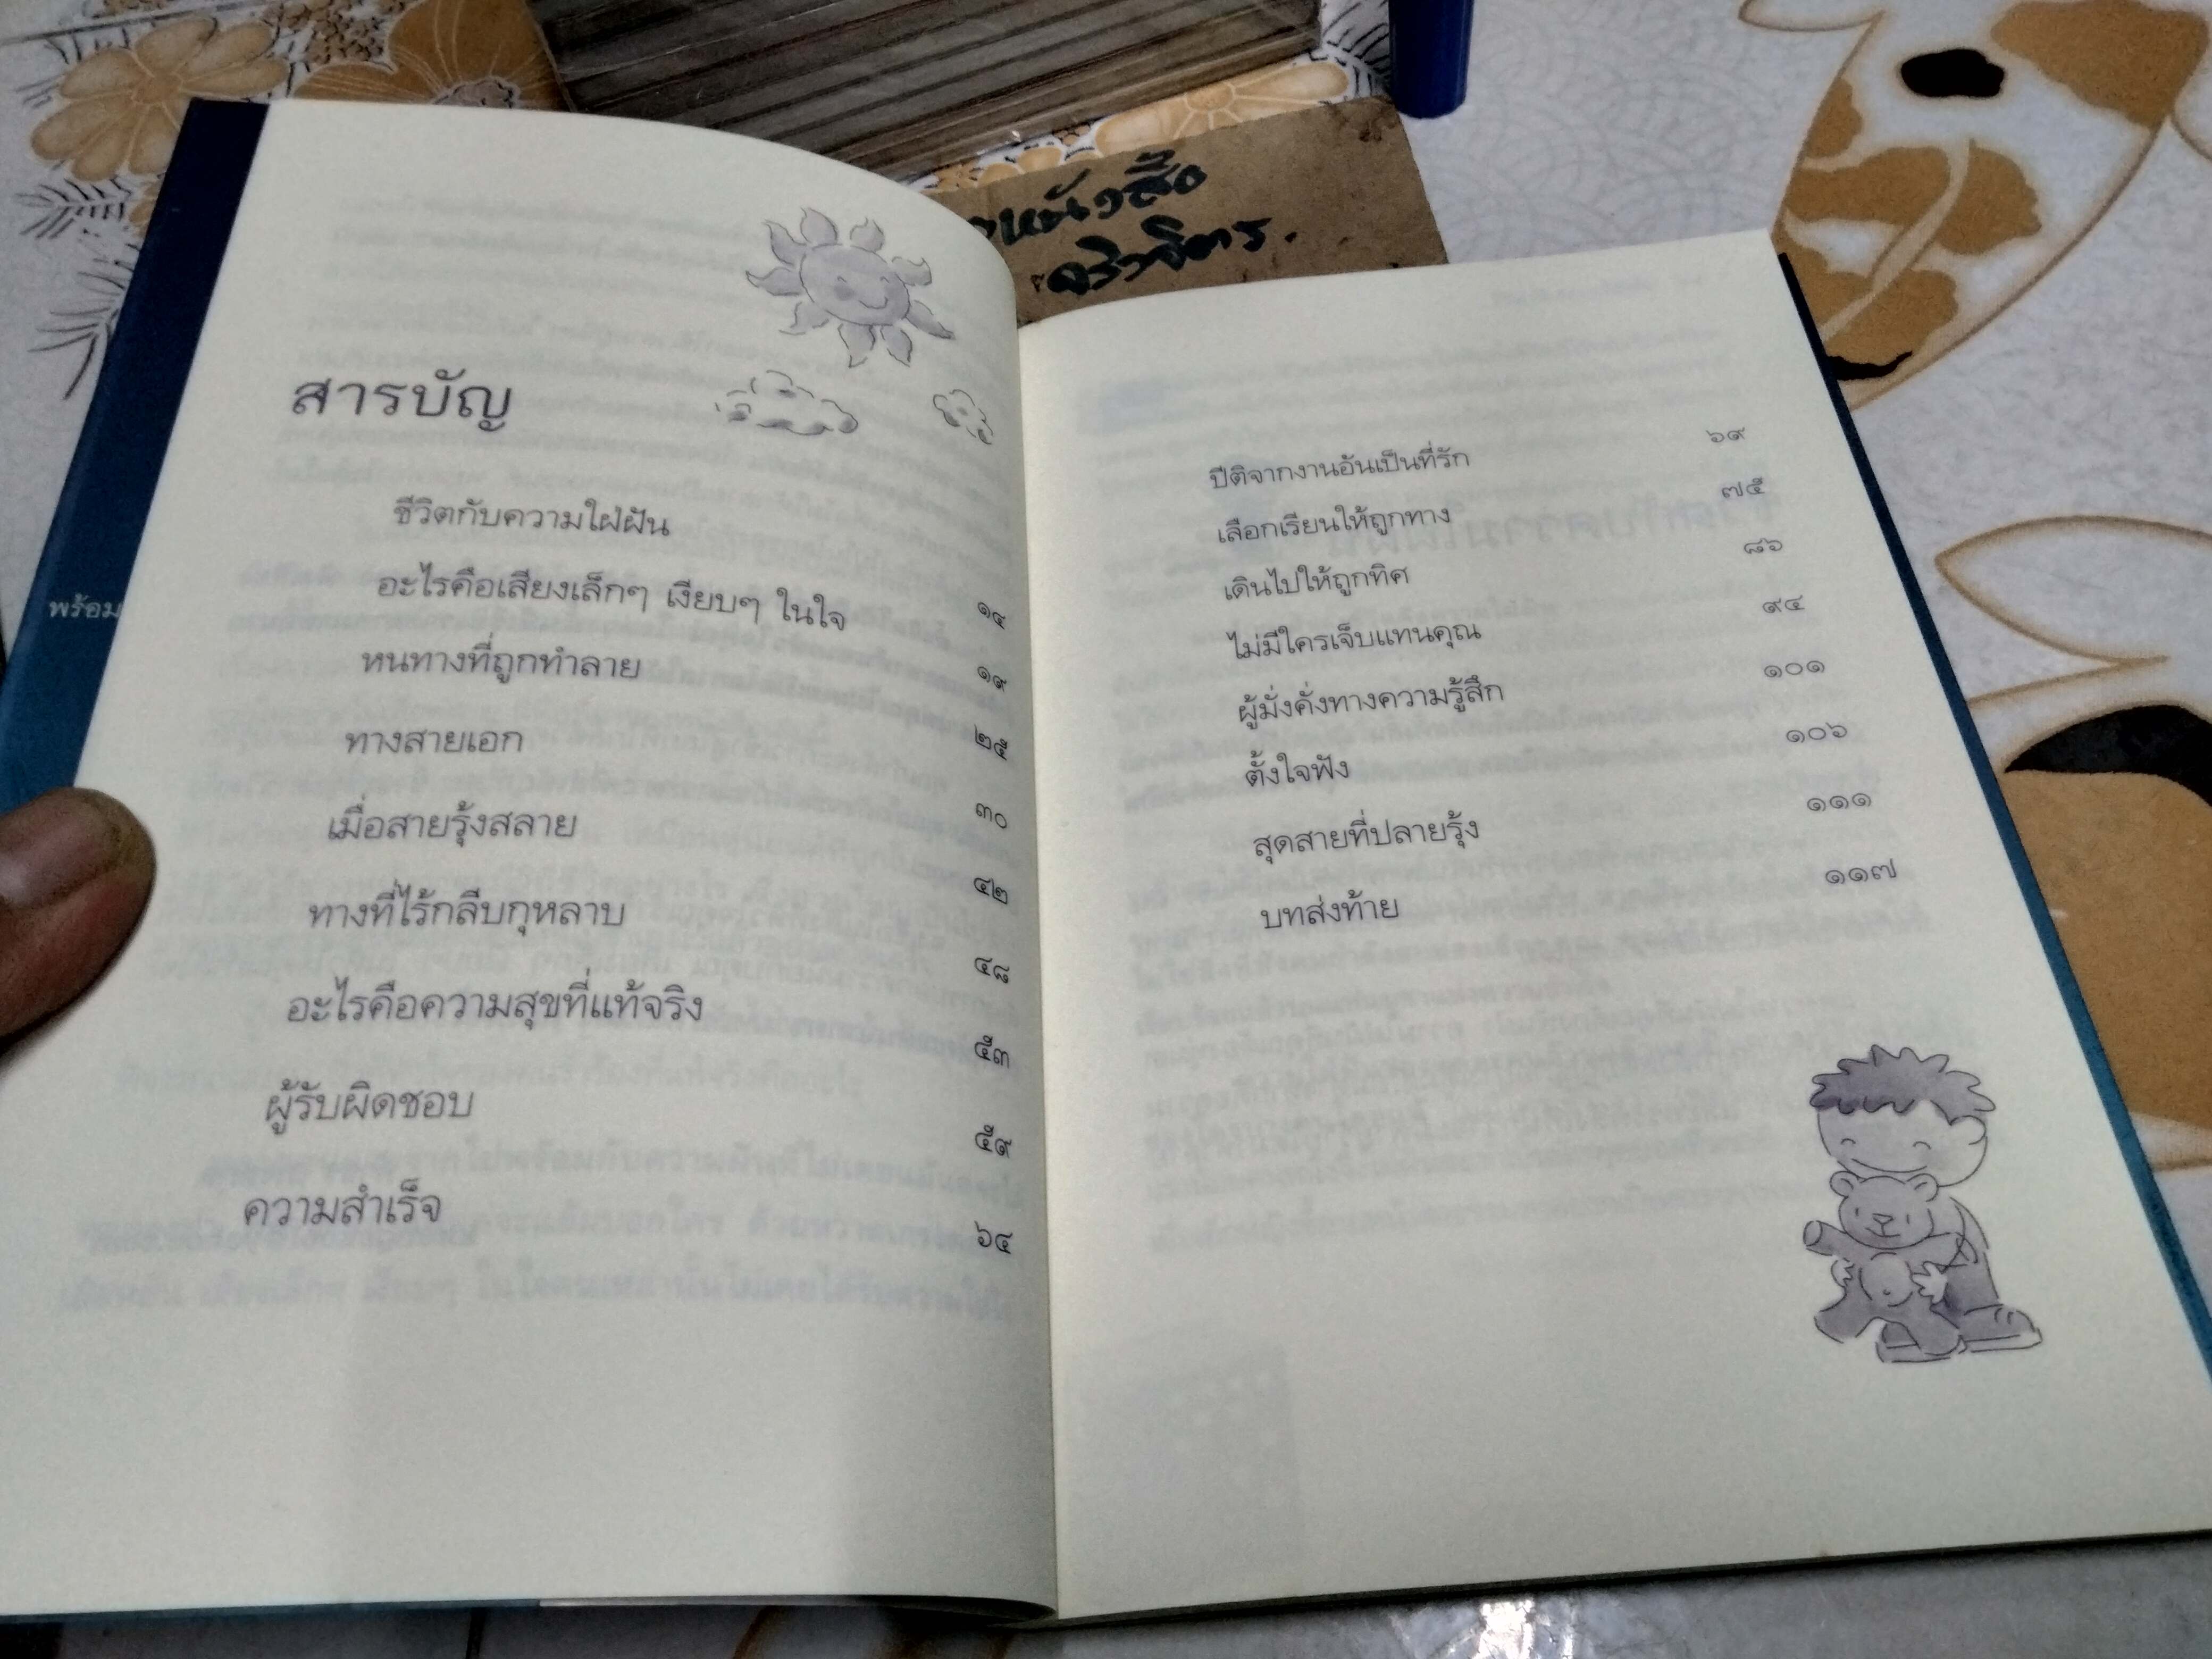 สารบัญ
ชีวิตกับความใฝ่ฝัน ๑๔
อะไรคือเสียงเล็กๆ เงียบๆ ในใจ ๑๙
หนทางที่ถูกทำลาย ๒๕
ทางสายเอก ๓๐
เมื่อสายรุ้งสลาย ๔๒
ทางที่ไร้กลีบกุหลาบ ๔๘
อะไรคือความสุขที่แท้จริง ๕๓
ผู้รับผิดชอบ ๕๙
ความสำเร็จ ๖๔
ปีติจากงานอันเป็นที่รัก ๖๙
เลือกเรียนให้ถูกทาง ๗๕
เดินไปให้ถูกทิศ ๘๖
ไม่มีใครเจ็บแทนคุณ ๙๔
ผู้มั่งคั่งทางความรู้สึก ๑๐๑
ตั้งใจฟัง ๑๐๖
สุดสายที่ปลายรุ้ง ๑๑๑
บทส่งท้าย ๑๑๗
พร้อม